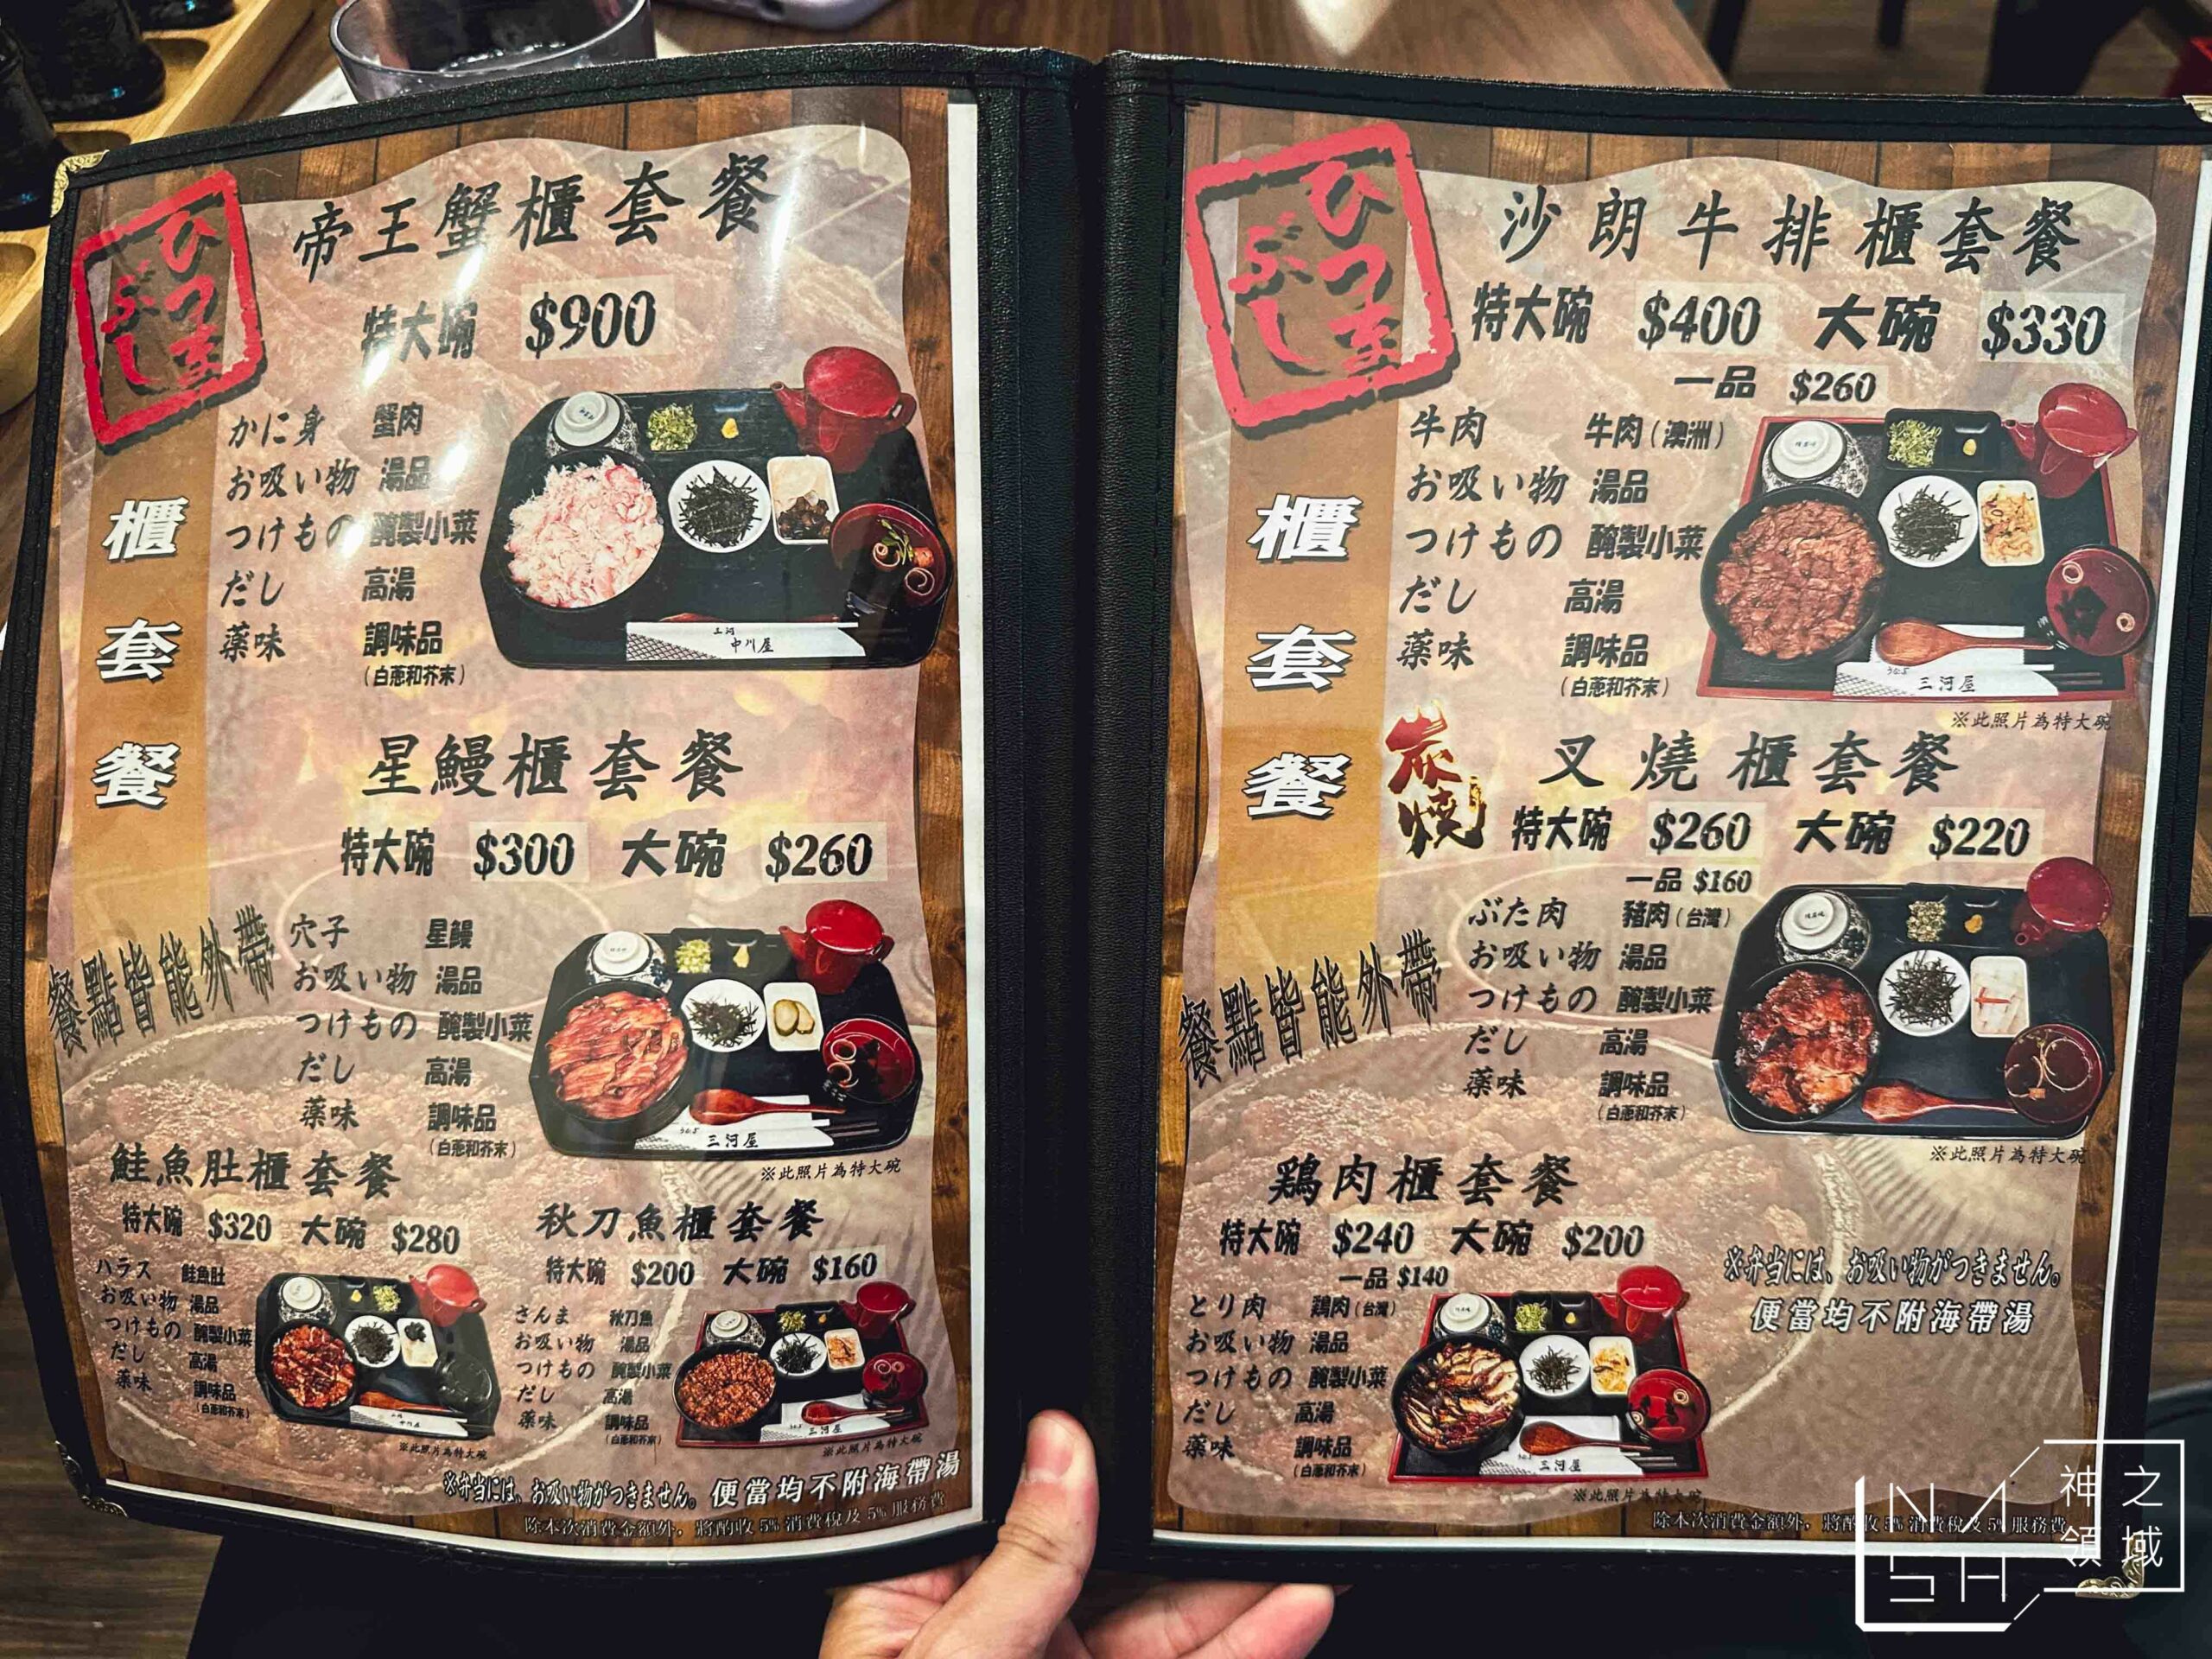 ひつまぶし
帝王蟹櫃套餐
特大碗 $900
かに身 蟹肉
お吸い物 湯品
つけもの 醃製小菜
だし 高湯
薬味 調味品
(白蔥和芥末)
三河 中川屋
櫃套餐
星鰻櫃套餐
特大碗 $300 大碗 $260
餐點皆能外帶
穴子 星鰻
お吸い物 湯品
つけもの 醃製小菜
だし 高湯
薬味 調味品
(白蔥和芥末)
三河屋
※此照片為特大碗
鮭魚肚櫃套餐
特大碗 $320 大碗 $280
ハラス 鮭魚肚
お吸い物 湯品
つけもの 醃製小菜
だし 高湯
薬味 調味品
(白蔥和芥末)
中川屋
※此照片為特大碗
秋刀魚櫃套餐
特大碗 $200 大碗 $160
さんま 秋刀魚
お吸い物 湯品
つけもの 醃製小菜
だし 高湯
薬味 調味品
(白蔥和芥末)
三河屋
※此照片為特大碗
※弁当には、お吸い物がつきません。 便當均不附海帶湯
除本次消費金額外，將酌收 5% 消費稅及 5% 服務費
ひつまぶし
沙朗牛排櫃套餐
特大碗 $400 大碗 $330
一品 $260
牛肉 牛肉(澳洲)
お吸い物 湯品
つけもの 醃製小菜
だし 高湯
薬味 調味品
(白蔥和芥末)
三河屋
※此照片為特大碗
櫃套餐
炭燒
叉燒櫃套餐
特大碗 $260 大碗 $220
一品 $160
餐點皆能外帶
ぶた肉 豬肉(台灣)
お吸い物 湯品
つけもの 醃製小菜
だし 高湯
薬味 調味品
(白蔥和芥末)
※此照片為特大碗
鶏肉櫃套餐
特大碗 $240 大碗 $200
一品 $140
とり肉 鶏肉(台灣)
お吸い物 湯品
つけもの 醃製小菜
だし 高湯
薬味 調味品
(白蔥和芥末)
三河屋
※此照片為特大碗
※弁当には、お吸い物がつきません。
便當均不附海帶湯
除本次消費金額外，將酌收 5% 消費稅及 5% 服務費
NASH
神之領域